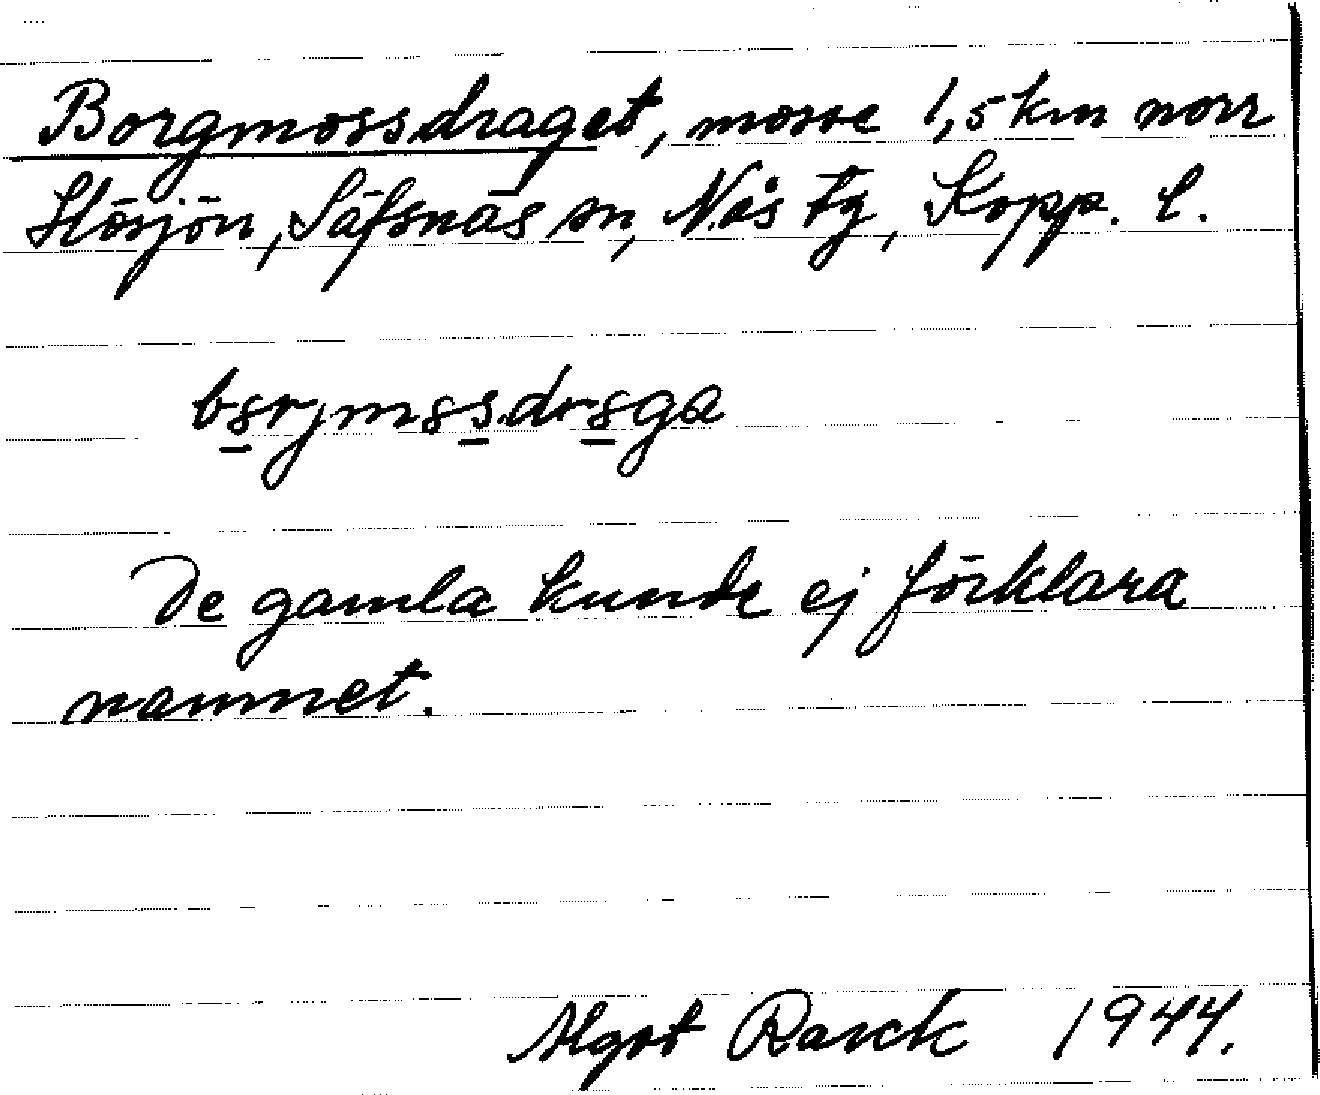 Borgmossdraget, mosse 1,5 km norr
Hösjön, Säfsnäs sn, Nås tg, Kopp. l.
De gamla kunde ej förklara
namnet.
Algot Rarck 1944.